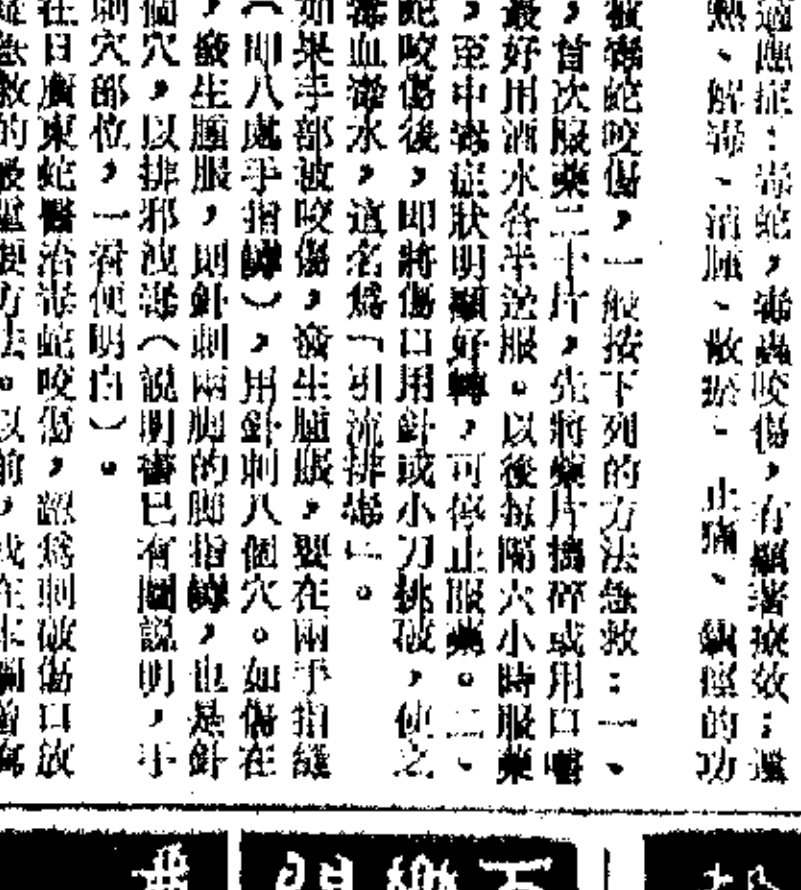 適應症：毒蛇，毒蟲咬傷，有顯著療效；還
熱、解毒、消腫、散瘀、止痛、鎮痙的功
被毒蛇咬傷，一般按下列的方法急救：一、
，首次服藥二十片，先將藥片搗碎或用口嚼
最好用酒水各半送服。以後每隔六小時服藥
，至中毒症狀明顯好轉，可停止服藥。二、
蛇咬傷後，即將傷口用針或小刀挑破，使之
毒血毒水，這名爲「引流排毒」。
如果手部被咬傷，發生腫脹，要在兩手指縫
（即八處手指罅），用針刺八個穴。如傷在
，發生腫脹，則針刺兩脚的脚指罅，也是針
個穴，以排邪洩毒（說明書已有圖說明，手
刺穴部位，一看便明白）。
在日廣東蛇醫治毒蛇咬傷，認爲刺破傷口放
急救的最重要方法。以前，或在未